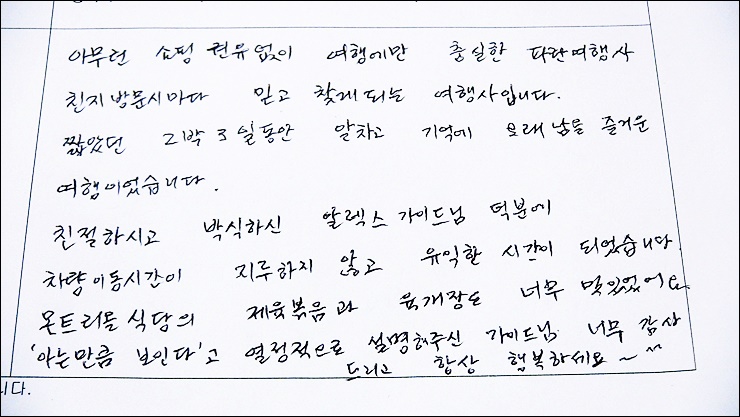 아무런 쇼핑 권유없이 여행에만 충실한 파란여행사
친지방문시마다 믿고 찾게되는 여행사입니다.
짧았던 2박 3일동안 알차고 기억에 오래남을 즐거운
여행이었습니다.
친절하시고 박식하신 알렉스 가이드님 덕분에
차량이동시간이 지루하지 않고 유익한 시간이 되었습니다.
몬트리올 식당의 제육볶음과 육개장도 너무 맛있었어요.
'아는만큼 보인다'고 열정적으로 설명해주신 가이드님 너무 감사
드리고 항상 행복하세요~^^
니다.